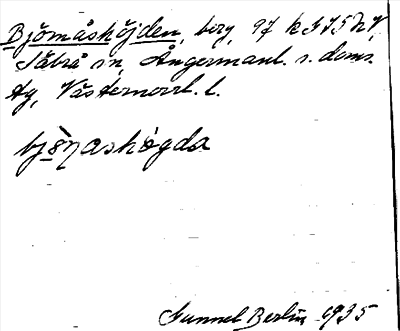 Björnåshöjden, berg, 97 k I 75 h V,
Säbrå sn, Ångermanl. s. doms.
tg, Västernorrl. l.
bjö̀ŋashø̀gda
Gunnel Berlin 1935